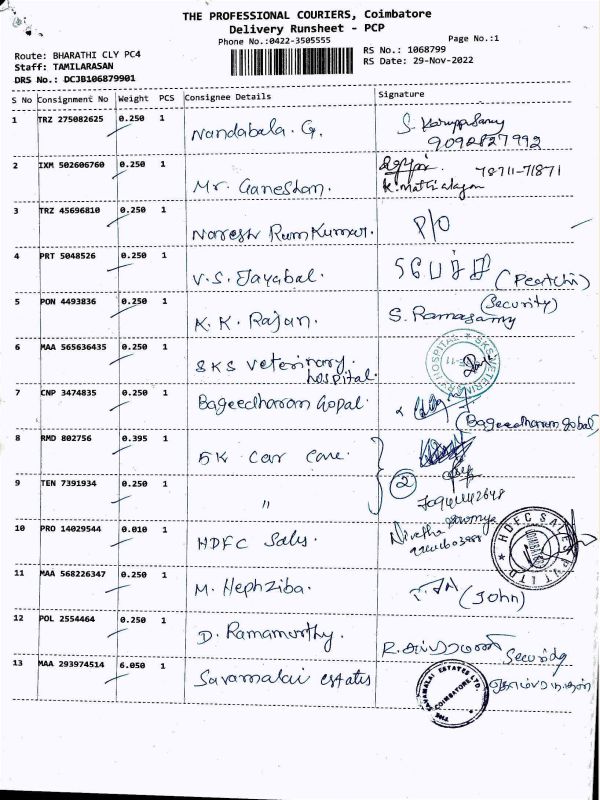 THE PROFESSIONAL COURIERS, Coimbatore
Delivery Runsheet - PCP
Phone No.:0422-3505555
Page No.:1
Route: BHARATHI CLY PC4
RS No.: 1068799
Staff: TAMILARASAN
RS Date: 29-Nov-2022
DRS No.: DCJB106879901
S No Consignment No Weight PCS Consignee Details Signature
1 TRZ 275082625 0.250 1 Nandabala. G. S. Karuppusamy
9092827992
2 IXM 502606760 0.250 1 Mr. Ganeshan. 78711-71871
K. Mathialagan
3 TRZ 45696810 0.250 1 Naresh Ram Kumar. P/O
4 PRT 5048526 0.250 1 V.S. Jayabal. (Peatchi)
5 PON 4493836 0.250 1 K.K. Rajan. S. Ramasamy (Security)
6 MAA 565636435 0.250 1 SKS veterinary hospital. SKS VETERINARY HOSPITAL
7 CNP 3474835 0.250 1 Bageedharan Gopal. (Bageedharan Gobal)
8 RMD 802756 0.395 1 5K car care.
9 TEN 7391934 0.250 1 〃 2
10 PRO 14029544 0.010 1 HDFC Sales. Nivetha HDFC SALES PVT LTD
11 MAA 568226347 0.250 1 M. Hephziba. (John)
12 POL 2554464 0.250 1 D. Ramamurthy. Security
13 MAA 293974514 6.050 1 Savamalai estates THE SAVAMALAI ESTATES LTD. COIMBATORE